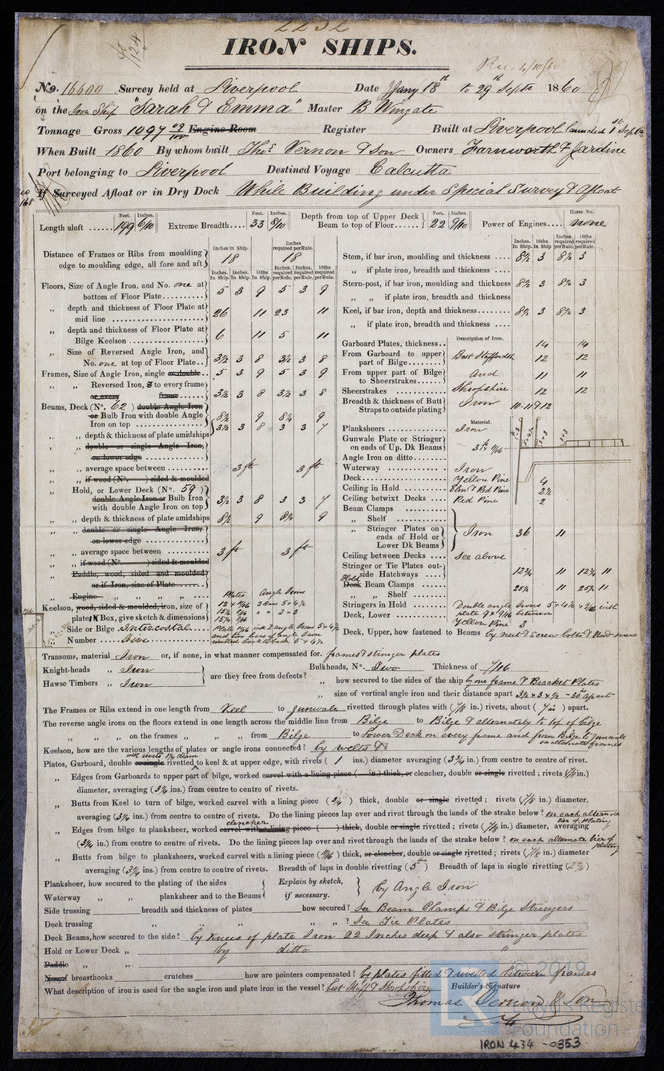 2232
IRON SHIPS.
No. 16600 Survey held at Liverpool Date Jany 18th to 29th Septr 1860
on the Iron Ship "Sarah & Emma" Master B Wingate
Tonnage Gross 1097 Engine Room Register Built at Liverpool Launched 1st Septr
When Built 1860 By whom built Thos. Vernon & Son Owners Farnworth & Jardine
Port belonging to Liverpool Destined Voyage Calcutta
If Surveyed Afloat or in Dry Dock While Building under Special Survey & afloat
Length aloft ...... Feet. 199 Inches. 6/10 Extreme Breadth.... Feet. 33 Inches. 8/10 Depth from top of Upper Deck Beam to top of Floor... Feet. 22 Inches. 9/10 Power of Engines.... Horse No. none
Distance of Frames or Ribs from moulding edge to moulding edge, all fore and aft Inches in Ship. 18 Inches required per Rule. 18
Floors, Size of Angle Iron, and No. one at bottom of Floor Plate 5 3 9 5 3 9
„ depth and thickness of Floor Plate at mid line 26 11 23 11
„ depth and thickness of Floor Plate at Bilge Keelson 6 11 5 11
„ Size of Reversed Angle Iron, and No. one, at top of Floor Plate 3½ 3 8 3½ 3 8
Frames, Size of Angle Iron, single or double 5 3 9 5 3 9
„ Reversed Iron, to every frame or every frame 3½ 3 8 3½ 3 8
Beams, Deck (No. 62) double Angle Iron or Bulb Iron with double Angle Iron on top
„ „ depth & thickness of plate amidships
„ „ double or single Angle Iron, on lower edge
„ „ average space between 3 ft 3 ft
„ „ if wood (No. ) sided & moulded
„ Hold, or Lower Deck (No. 59) double Angle Iron or Bulb Iron with double Angle Iron on top 3½ 3 8 3 3 7
„ „ depth & thickness of plate amidships 8½ 9 8¼ 9
„ „ double or single Angle Iron, on lower edge
„ „ average space between 3 ft 3 ft
„ „ if wood (No. ) sided & moulded
„ Paddle, wood, sided and moulded or if Iron, size of Plate
„ Engine
Keelson, wood, sided & moulded, iron, size of plates, Box, give sketch & dimensions Plates Angle Irons
„ Side or Bilge Intercostal
„ Number Five
Stem, if bar iron, moulding and thickness 8½ 3 8½ 3
„ if plate iron, breadth and thickness
Stern-post, if bar iron, moulding and thickness 8½ 3 8½ 3
„ „ if plate iron, breadth and thickness
Keel, if bar iron, depth and thickness 8½ 3 8½ 3
„ if plate iron, breadth and thickness
Description of Iron.
Garboard Plates, thickness 14 14
From Garboard to upper part of Bilge Best Staffordsh 12 12
From upper part of Bilge to Sheerstrakes And 11 11
Sheerstrakes Shropshire 12 12
Breadth & thickness of Butt Straps to outside plating Iron 10·11 9 12
Material.
Planksheers Iron
Gunwale Plate or Stringer on ends of Up. Dk Beams
Angle Iron on ditto
Waterway Iron
Deck Yellow Pine 4
Ceiling in Hold Elm & Red Pine 2½
Ceiling betwixt Decks Red Pine 2
Beam Clamps
„ Shelf
„ Stringer Plates on ends of Hold or Lower Dk Beams Iron 36 11
Ceiling between Decks See above
Stringer or Tie Plates outside Hatchways 12¾ 11 12¾ 11
Hold Deck Beam Clamps
„ „ Shelf
Stringers in Hold Double angle irons
Deck, Lower Yellow Pine 3
Deck, Upper, how fastened to Beams by nut & Screw bolts
Transoms, material Iron or, if none, in what manner compensated for. frames & stringer plates
Knight-heads „ Iron
Hawse Timbers „ Iron are they free from defects?
Bulkheads, No. Two Thickness of 7/16
„ how secured to the sides of the ship by one frame & Bracket Plates
„ size of vertical angle iron and their distance apart 3½ x 3 x ½ - 30 apart
The Frames or Ribs extend in one length from Keel to gunwale rivetted through plates with (7/8 in.) rivets, about (7 in) apart.
The reverse angle irons on the floors extend in one length across the middle line from Bilge to Bilge & alternately to top of bilge
„ „ „ on the frames „ „ from Bilge to Lower Deck on every frame and from Bilge to gunwale on alternate frames
Keelson, how are the various lengths of plates or angle irons connected? by welts &c
Plates, Garboard, double or single rivetted to keel & at upper edge, with rivets ( 1 ins.) diameter averaging (3¾ in.) from centre to centre of rivet.
„ Edges from Garboards to upper part of bilge, worked carvel with a lining piece ( in.) thick, or clencher, double or single rivetted; rivets (7/8 in.)
diameter, averaging (3¾ ins.) from centre to centre of rivets.
„ Butts from Keel to turn of bilge, worked carvel with a lining piece ( ) thick, double or single rivetted; rivets (7/8 in.) diameter.
averaging (3½ ins.) from centre to centre of rivets. Do the lining pieces lap over and rivet through the lands of the strake below? on each alternate tier of plating
„ Edges from bilge to planksheer, worked clencher carvel with lining piece ( ) thick, double or single rivetted; rivets (7/8 in.) diameter, averaging
(3¾ in.) from centre to centre of rivets. Do the lining pieces lap over and rivet through the lands of the strake below? on each alternate tier of plating
„ Butts from bilge to planksheers, worked carvel with a lining piece ( ) thick, or clencher, double or single rivetted; rivets (7/8 in.) diameter
averaging (3½ ins) from centre to centre of rivets. Breadth of laps in double rivetting (5 in) Breadth of laps in single rivetting ( )
Planksheer, how secured to the plating of the sides
Waterway „ „ planksheer and to the Beams Explain by sketch, if necessary. by Angle Iron
Side trussing breadth and thickness of plates how secured? See Beam Clamps & Bilge Stringers
Deck trussing „ „ „ ? See Tie Plates
Deck Beams, how secured to the side? by knees of plate Iron 22 Inches deep & also stringer plates
Hold or Lower Deck „ by ditto
Paddle „
No. of breasthooks crutches how are pointers compensated? by plates fitted & rivetted between frames
What description of iron is used for the angle iron and plate iron in the vessel? best Staff & Shropshire Builder's Signature
Thomas Vernon & Son
© 2019
Lloyd's Register
Foundation
IRON 434 -0353